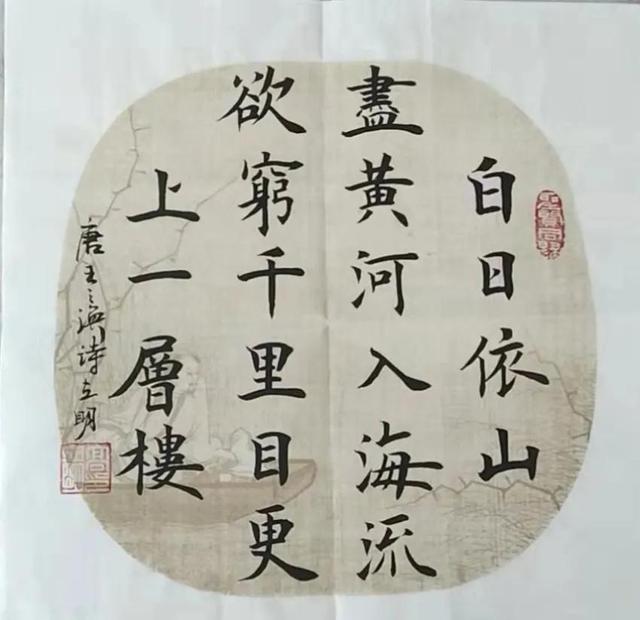 白日依山
盡黄河入海流
欲窮千里目更
上一層樓
唐王之涣诗立明